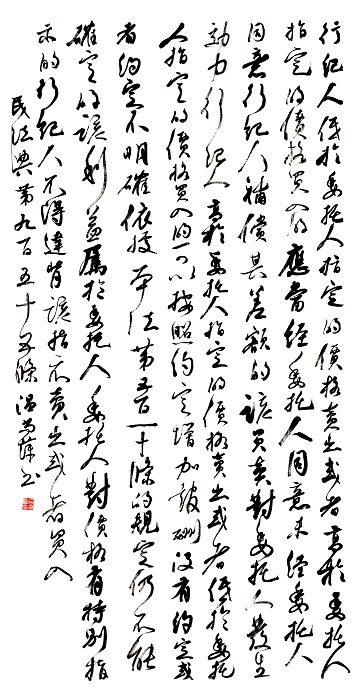 行紀人低於委托人指定的價格賣出或者高於委托人
指定的價格買入的應當經委托人同意未經委托人
同意行紀人補償其差額的該買賣對委托人發生
効力行紀人高於委托人指定的價格賣出或者低於委托
人指定的價格買入的可以按照約定增加報酬没有約定或
者約定不明確依據本法第五百一十條的規定仍不能
確定的該利益屬於委托人委托人對價格有特別指
示的行紀人不得違背該指示賣出或者買入
民法典第九百五十五條 温書